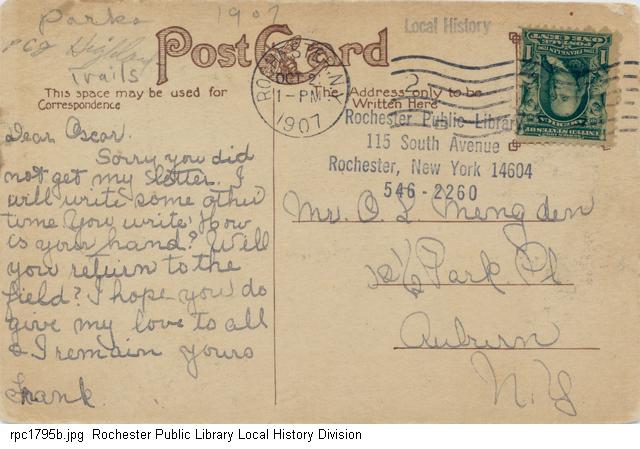 Parks 1907
pcg Highland
Trails
Local History
Post Card
ROCHESTER, N.Y.
OCT 2
1-PM
1907
2
This space may be used for
Correspondence
The Address only to be
Written Here
Rochester Public Library
115 South Avenue
Rochester, New York 14604
546-2260
Dear Oscar.
Sorry you did
not get my letter. I
will write some other
time you write. How
is your hand? Will
you return to the
field? I hope you do
give my love to all
& I remain yours
Frank.
Mr. O L Mengden
Park Pl
Auburn
N.Y
POSTAGE
ONE CENT
1 1
UNITED STATES OF AMERICA
rpc1795b.jpg Rochester Public Library Local History Division